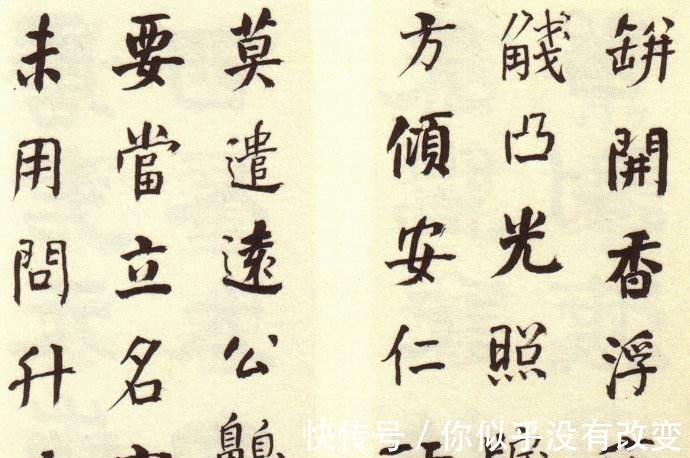 缾開香浮
凸光照
方傾安仁
莫遣遠公
要當立名
未用問升
快传号 / 你似乎没有改变